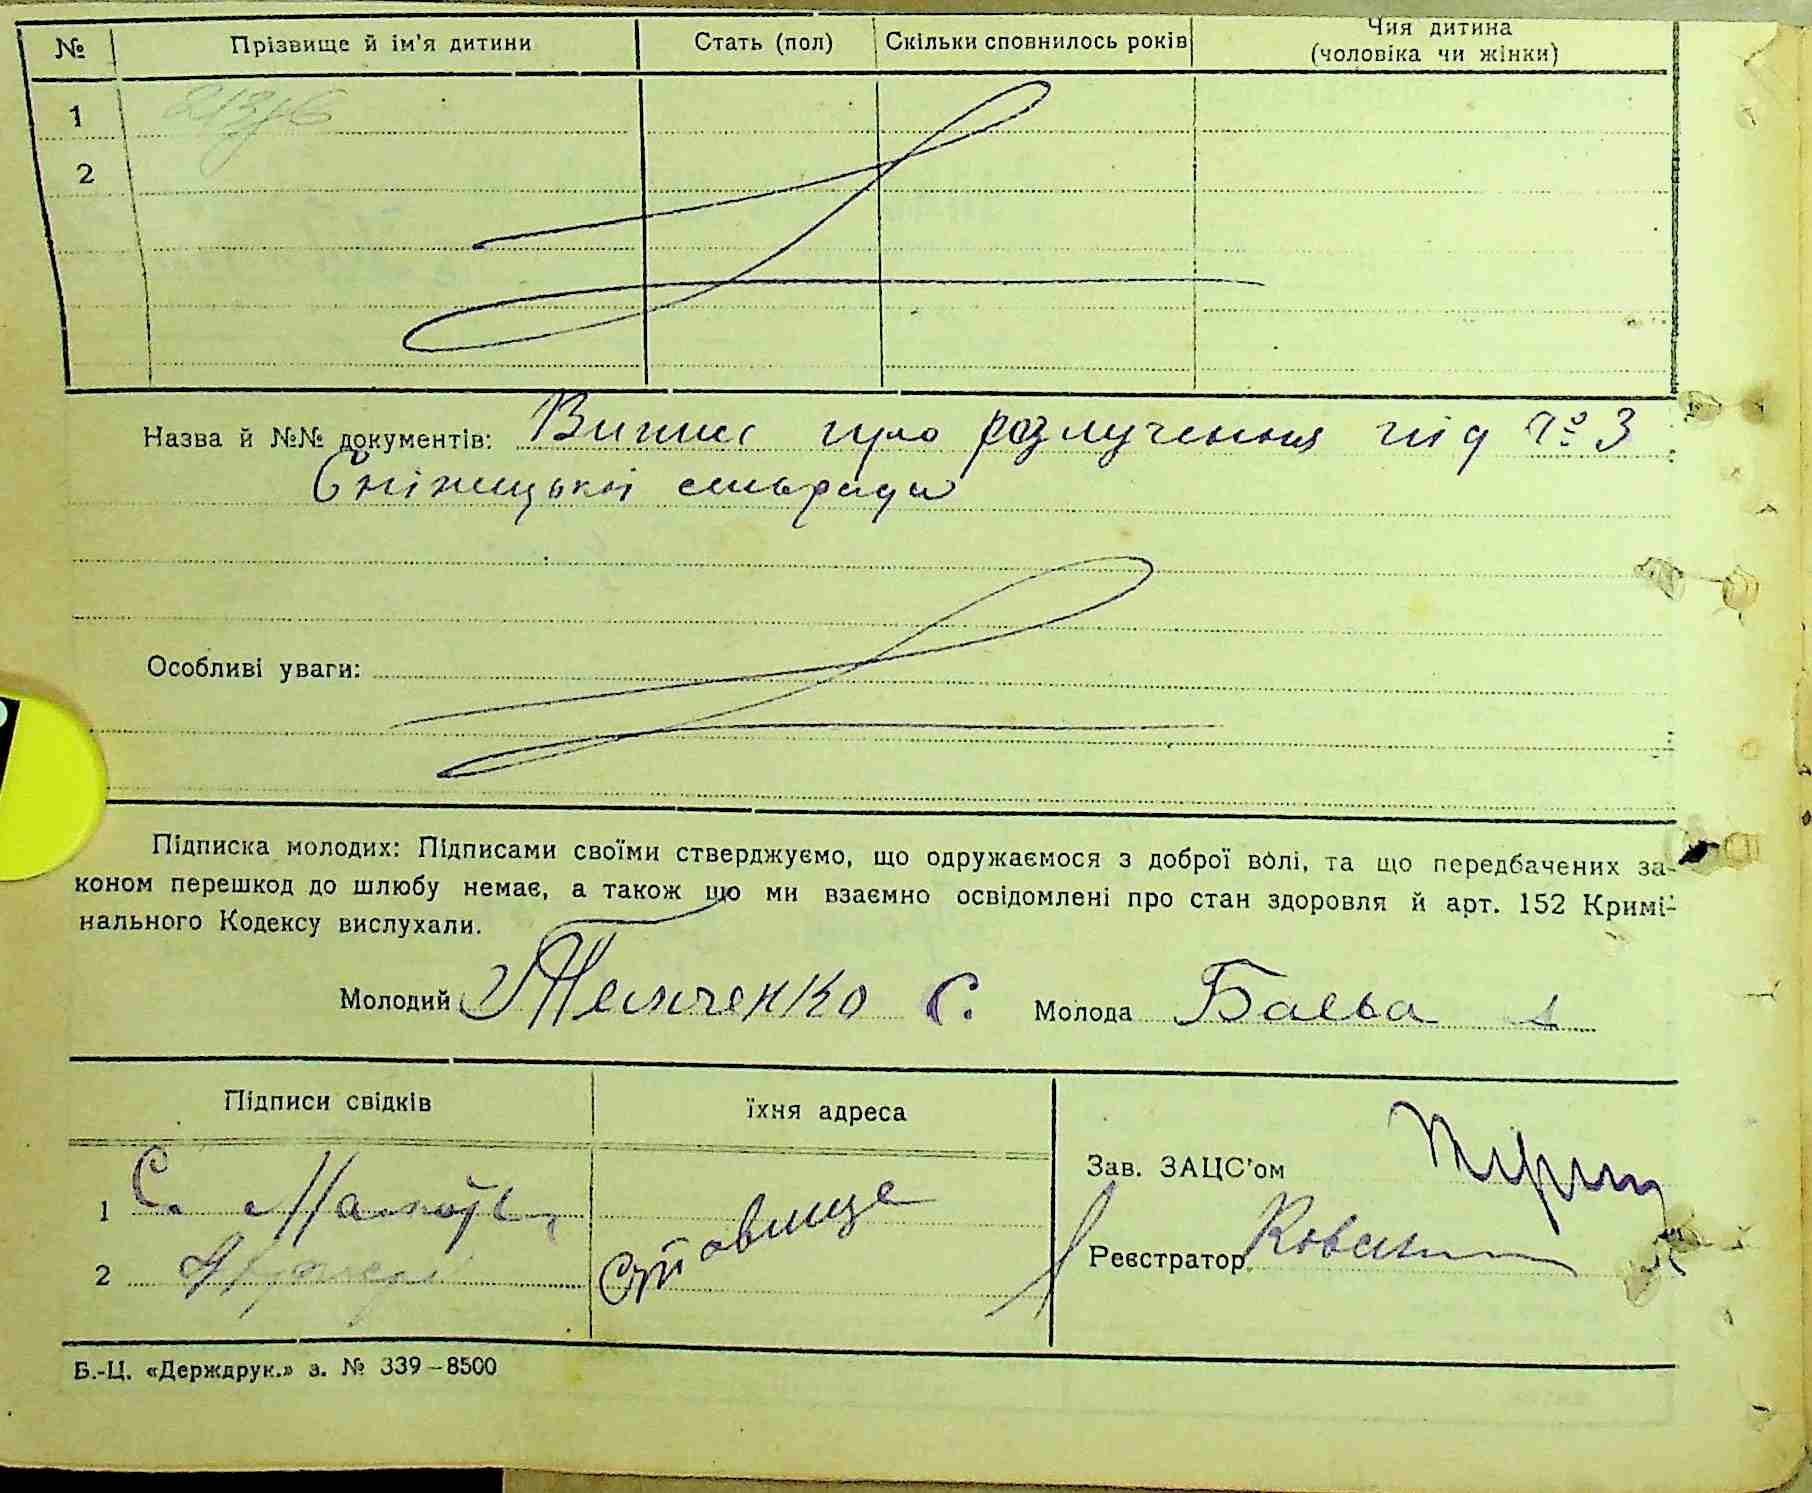 № Прізвище й ім'я дитини Стать (пол) Скільки сповнилось років Чия дитина (чоловіка чи жінки)
1
2
Назва й №№ документів: Випис про розлучення під № 3
сільради
Особливі уваги:
Підписка молодих: Підписами своїми стверджуємо, що одружаємося з доброї волі, та що передбачених за-
коном перешкод до шлюбу немає, а також що ми взаємно освідомлені про стан здоровля й арт. 152 Кримі-
нального Кодексу вислухали.
Молодий С. Молода Баєва
Підписи свідків їхня адреса
Зав. ЗАЦС'ом
1 С. Ставище
Реєстратор
2
Б.-Ц. «Держдрук.» з. № 339–8500